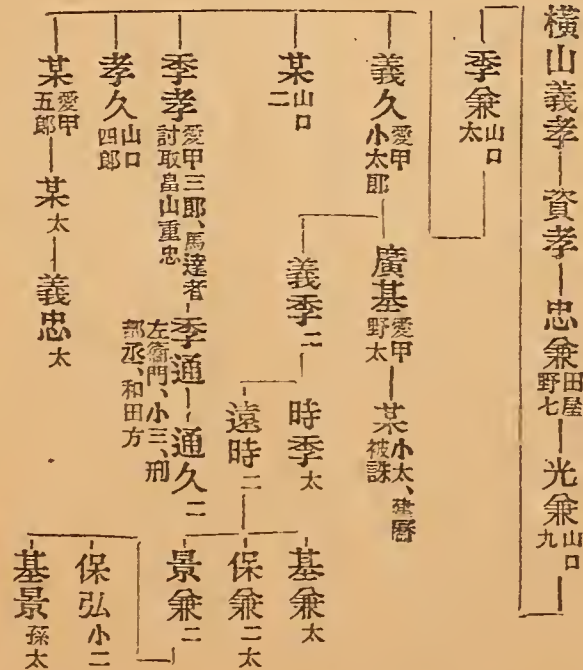 橫山義孝―資孝―忠兼 田屋野七―光兼 山口九
季兼 山口太
義久 愛甲小太郎
廣基 愛甲野太―某 小太、建曆被誅
義季 二
時季 太
遠時 二
基兼 太
保兼 二太
景兼 二
保弘 小二
基景 孫太
某 山口二
季孝 愛甲三郎、馬達者討取畠山重忠―季通 左衞門、小三、刑部丞、和田方―通久 二
孝久 山口四郎
某 愛甲五郎―某 太―義忠 太